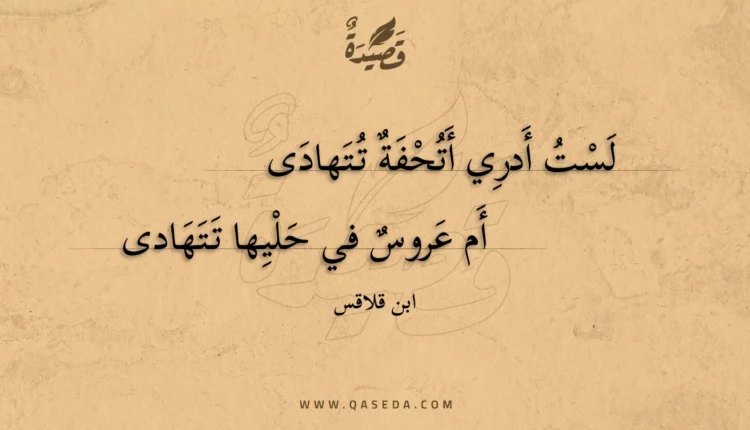 قَصِيْدَةٌ
لَسْتُ أَدرِي أَتُحْفَةٌ تُتَهادَى
أَم عَروسٌ في حَلْيِها تَتَهَادى
ابن قلاقس
WWW.QASEDA.COM